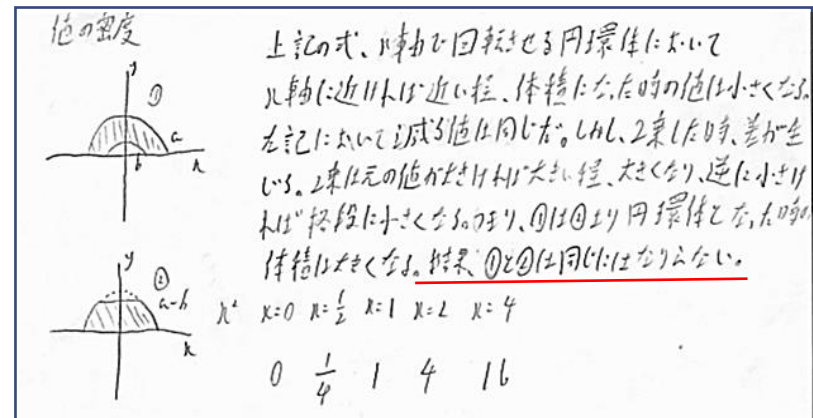 値の密度
上記の式、x軸で回転させる円環体において
x軸に近ければ近い程、体積になった時の値は小さくなる。
左記において減る値は同じだ。しかし、2乗した時、差が生
じる。2乗は元の値が大きければ大きい程、大きくなり、逆に小さけ
れば格段に小さくなる。つまり、①は②より円環体となった時の
体積は大きくなる。結果、①と②は同じにはなりえない。
y
①
a
b
x
y
②
a-b
x
x² x=0 x=1/2 x=1 x=2 x=4
0 1/4 1 4 16